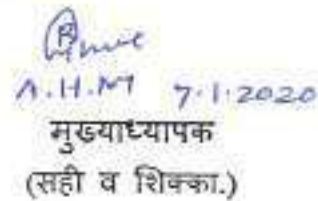 A.H.M 7.1.2020
मुख्याध्यापक
(सही व शिक्का.)